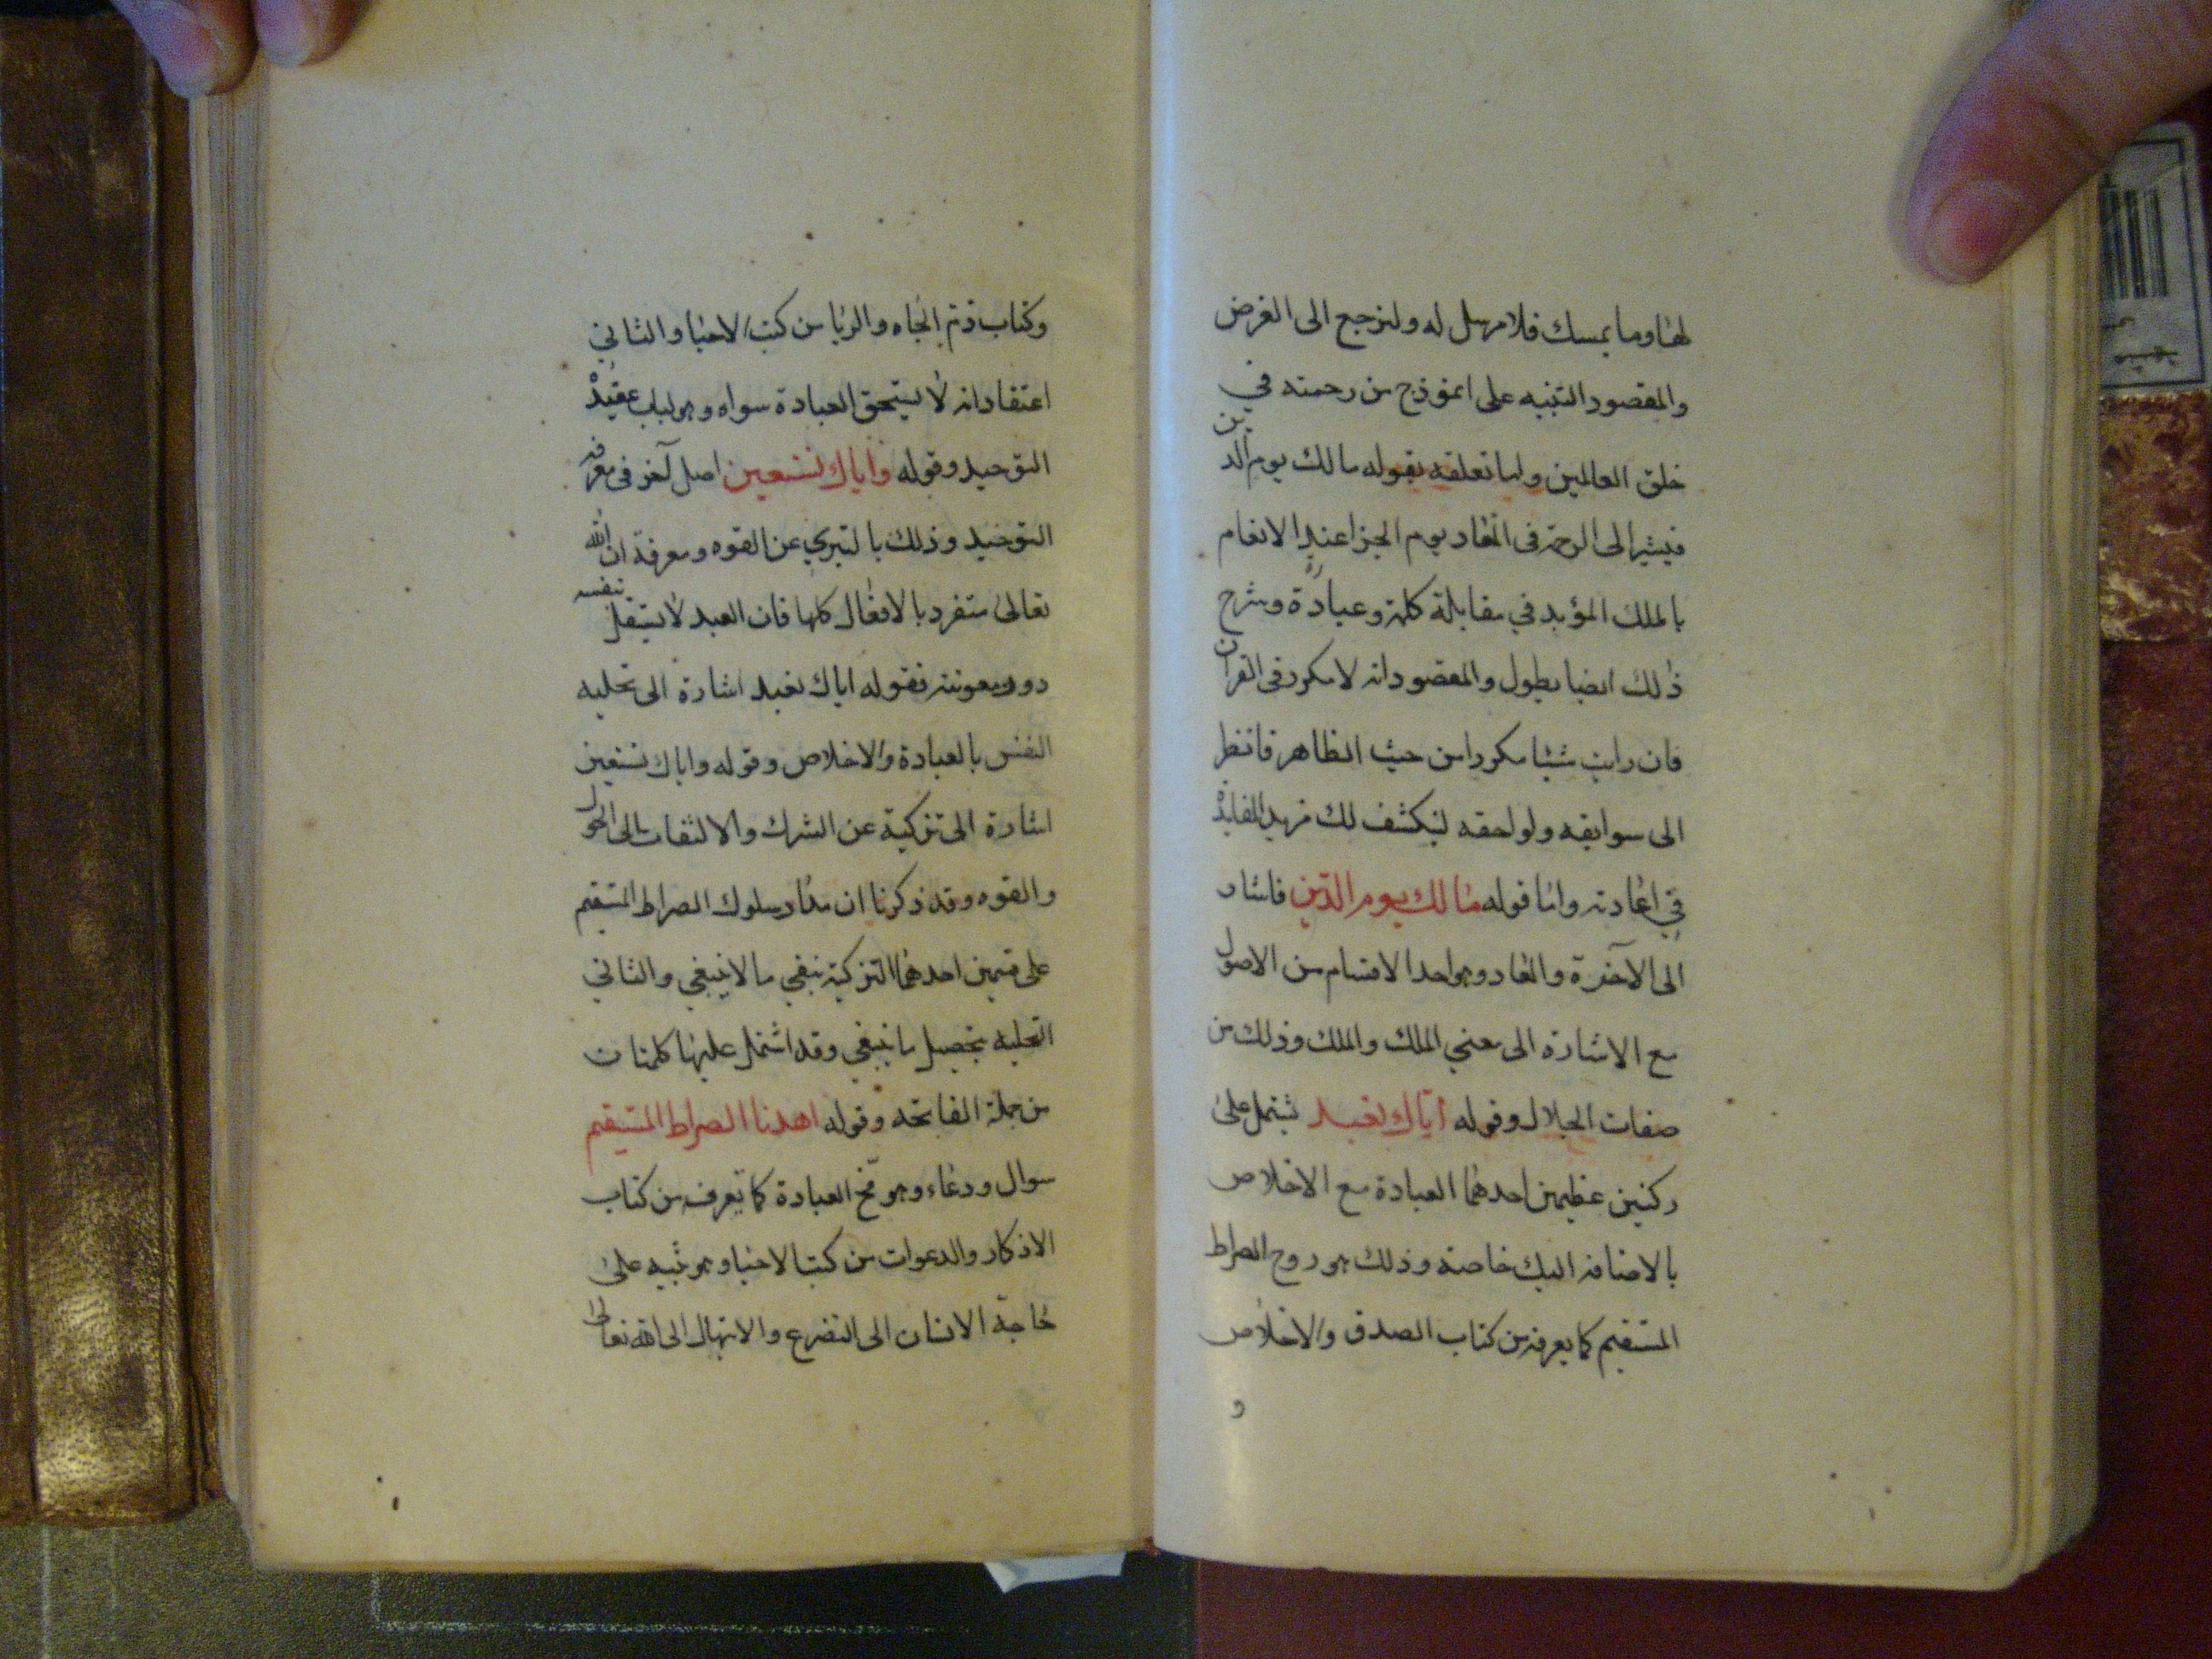 لها وما يمسك فلا مرسل له ولنرجع الى الغرض
والمقصود التنبيه على انموذج من رحمته في
خلق العالمين واما تعلقه بقوله مالك يوم الدين
فيشير الى الرحمة فى المعاد يوم الجزا عند الانعام
بالملك المؤبد في مقابلة كلمة وعبادة وشرح
ذلك ايضا يطول والمقصود انه لا مكرر فى القرآن
فان رايت شيئا مكررا من حيث الظاهر فانظر
الى سوابقه ولواحقه لينكشف لك مزيد الفايدة
في اعادته واما قوله مالك يوم الدين فاشار
الى الآخرة والمعاد وهو احد الاقسام من الاصول
مع الاشارة الى معنى الملك والملك وذلك من
صفات الجلال وقوله اياك نعبد يشتمل على
ركنين عظيمين احدهما العبادة مع الاخلاص
بالاضافة اليك خاصة وذلك هو روح الصراط
المستقيم كما يعرفه من كتاب الصدق والاخلاص
و
وكتاب ذم الجاه والريا من كتب الاحيا والثاني
اعتقاد انه لا يستحق العبادة سواه وهو لباب عقيدة
التوحيد وقوله واياك نستعين اصل آخر فى معرفة
التوحيد وذلك بالتبري عن القوه ومعرفة ان الله
تعالى متفرد بالافعال كلها فان العبد لا يستقل بنفسه
دون معونته فقوله اياك نعبد اشارة الى تحليه
النفس بالعبادة والاخلاص وقوله واياك نستعين
اشارة الى تزكية عن الشرك والالتفات الى الحول
والقوه وقد ذكرنا ان مدار سلوك الصراط المستقيم
على قسمين احدهما التزكية بنفي ما لا ينبغي والثاني
التحليه بتحصيل ما ينبغي وقد اشتمل عليها كلمتان
من جملة الفاتحه وقوله اهدنا الصراط المستقيم
سوال ودعاء وهو مخ العبادة كما تعرفه من كتاب
الاذكار والدعوات من كتب الاحيا وهو تنبيه على
حاجة الانسان الى التضرع والابتهال الى الله تعالى